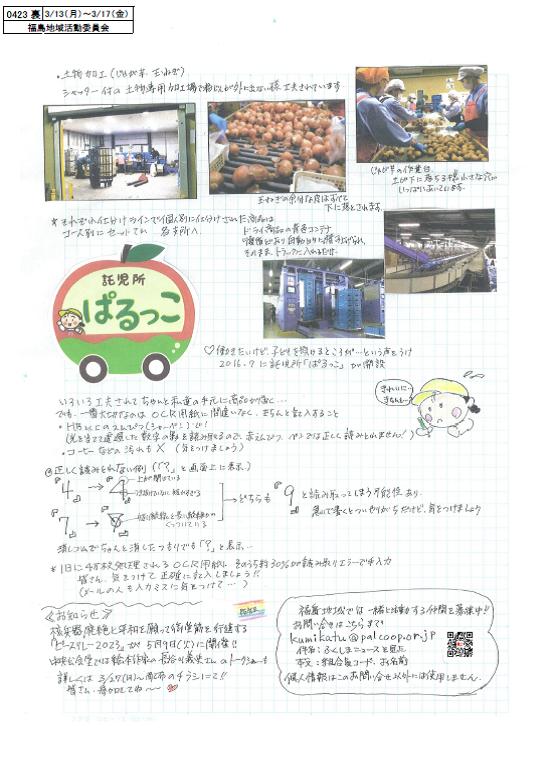 0423 裏 3/13(月)～3/17(金)
福島地域活動委員会
・土物加工(じゃが芋、玉ねぎ)
シャッター付の土物専用加工場で粉じんが外に出ない様、工夫されています
玉ねぎの余分な皮はすべて
下に落とされます。
じゃが芋の作業台。
土が下に落ちる様 小さな穴が
いっぱいあいています。
*それぞれ仕分けラインで個別に仕分けされた商品は
コース別にセットされ 各支所へ
ドライ商品の青色コンテナ
自動的に積み上げられ、
そのまま、トラックに入れるだけ。
託児所
ぱるっこ
♡働きたいけど、子どもを預けるところが…という声をうけ
2016.7に託児所「ぱるっこ」が開設
いろいろ工夫されてちゃんと私達の手元に商品が届く…
でも、一番大切なのはOCR用紙に間違いなく、きちんと記入すること
きれいに…
きちんと…
・HB以上のえんぴつ(シャーペン)で!
・コーヒーなどの汚れも×(気をつけましょう)
◎正しく読みとれない例(「?」と画面上に表示)
4 → 上が閉じている
7 →
くっついている
→どちらも 9 と読み取ってしまう可能性あり。
急いで書くとついやりがちだけど、気をつけましょう
消しゴムでちゃんと消したつもりでも「?」と表示…
*1日に 処理されるOCR用紙。そのうち約30%が読み取りエラーで手入力
皆さん、気をつけて正確に記入しましょう!!
(メールの人も入力ミスに気をつけて…)
≪お知らせ≫
核兵器廃絶と平和を願って 行進する
「ピースリレー2023」が5月9日(火)に開催!!
詳しくは 3/27(月)～配布のチラシにて!!
皆さん、参加してね～
福島地域では一緒に活動する仲間を募集中!!
お問い合せはこちらまで
kumikatu@palcoop.or.jp
件名:ふくしまニュースを見た
本文:組合員コード、お名前
個人情報はこのお問い合せ以外には使用しません。